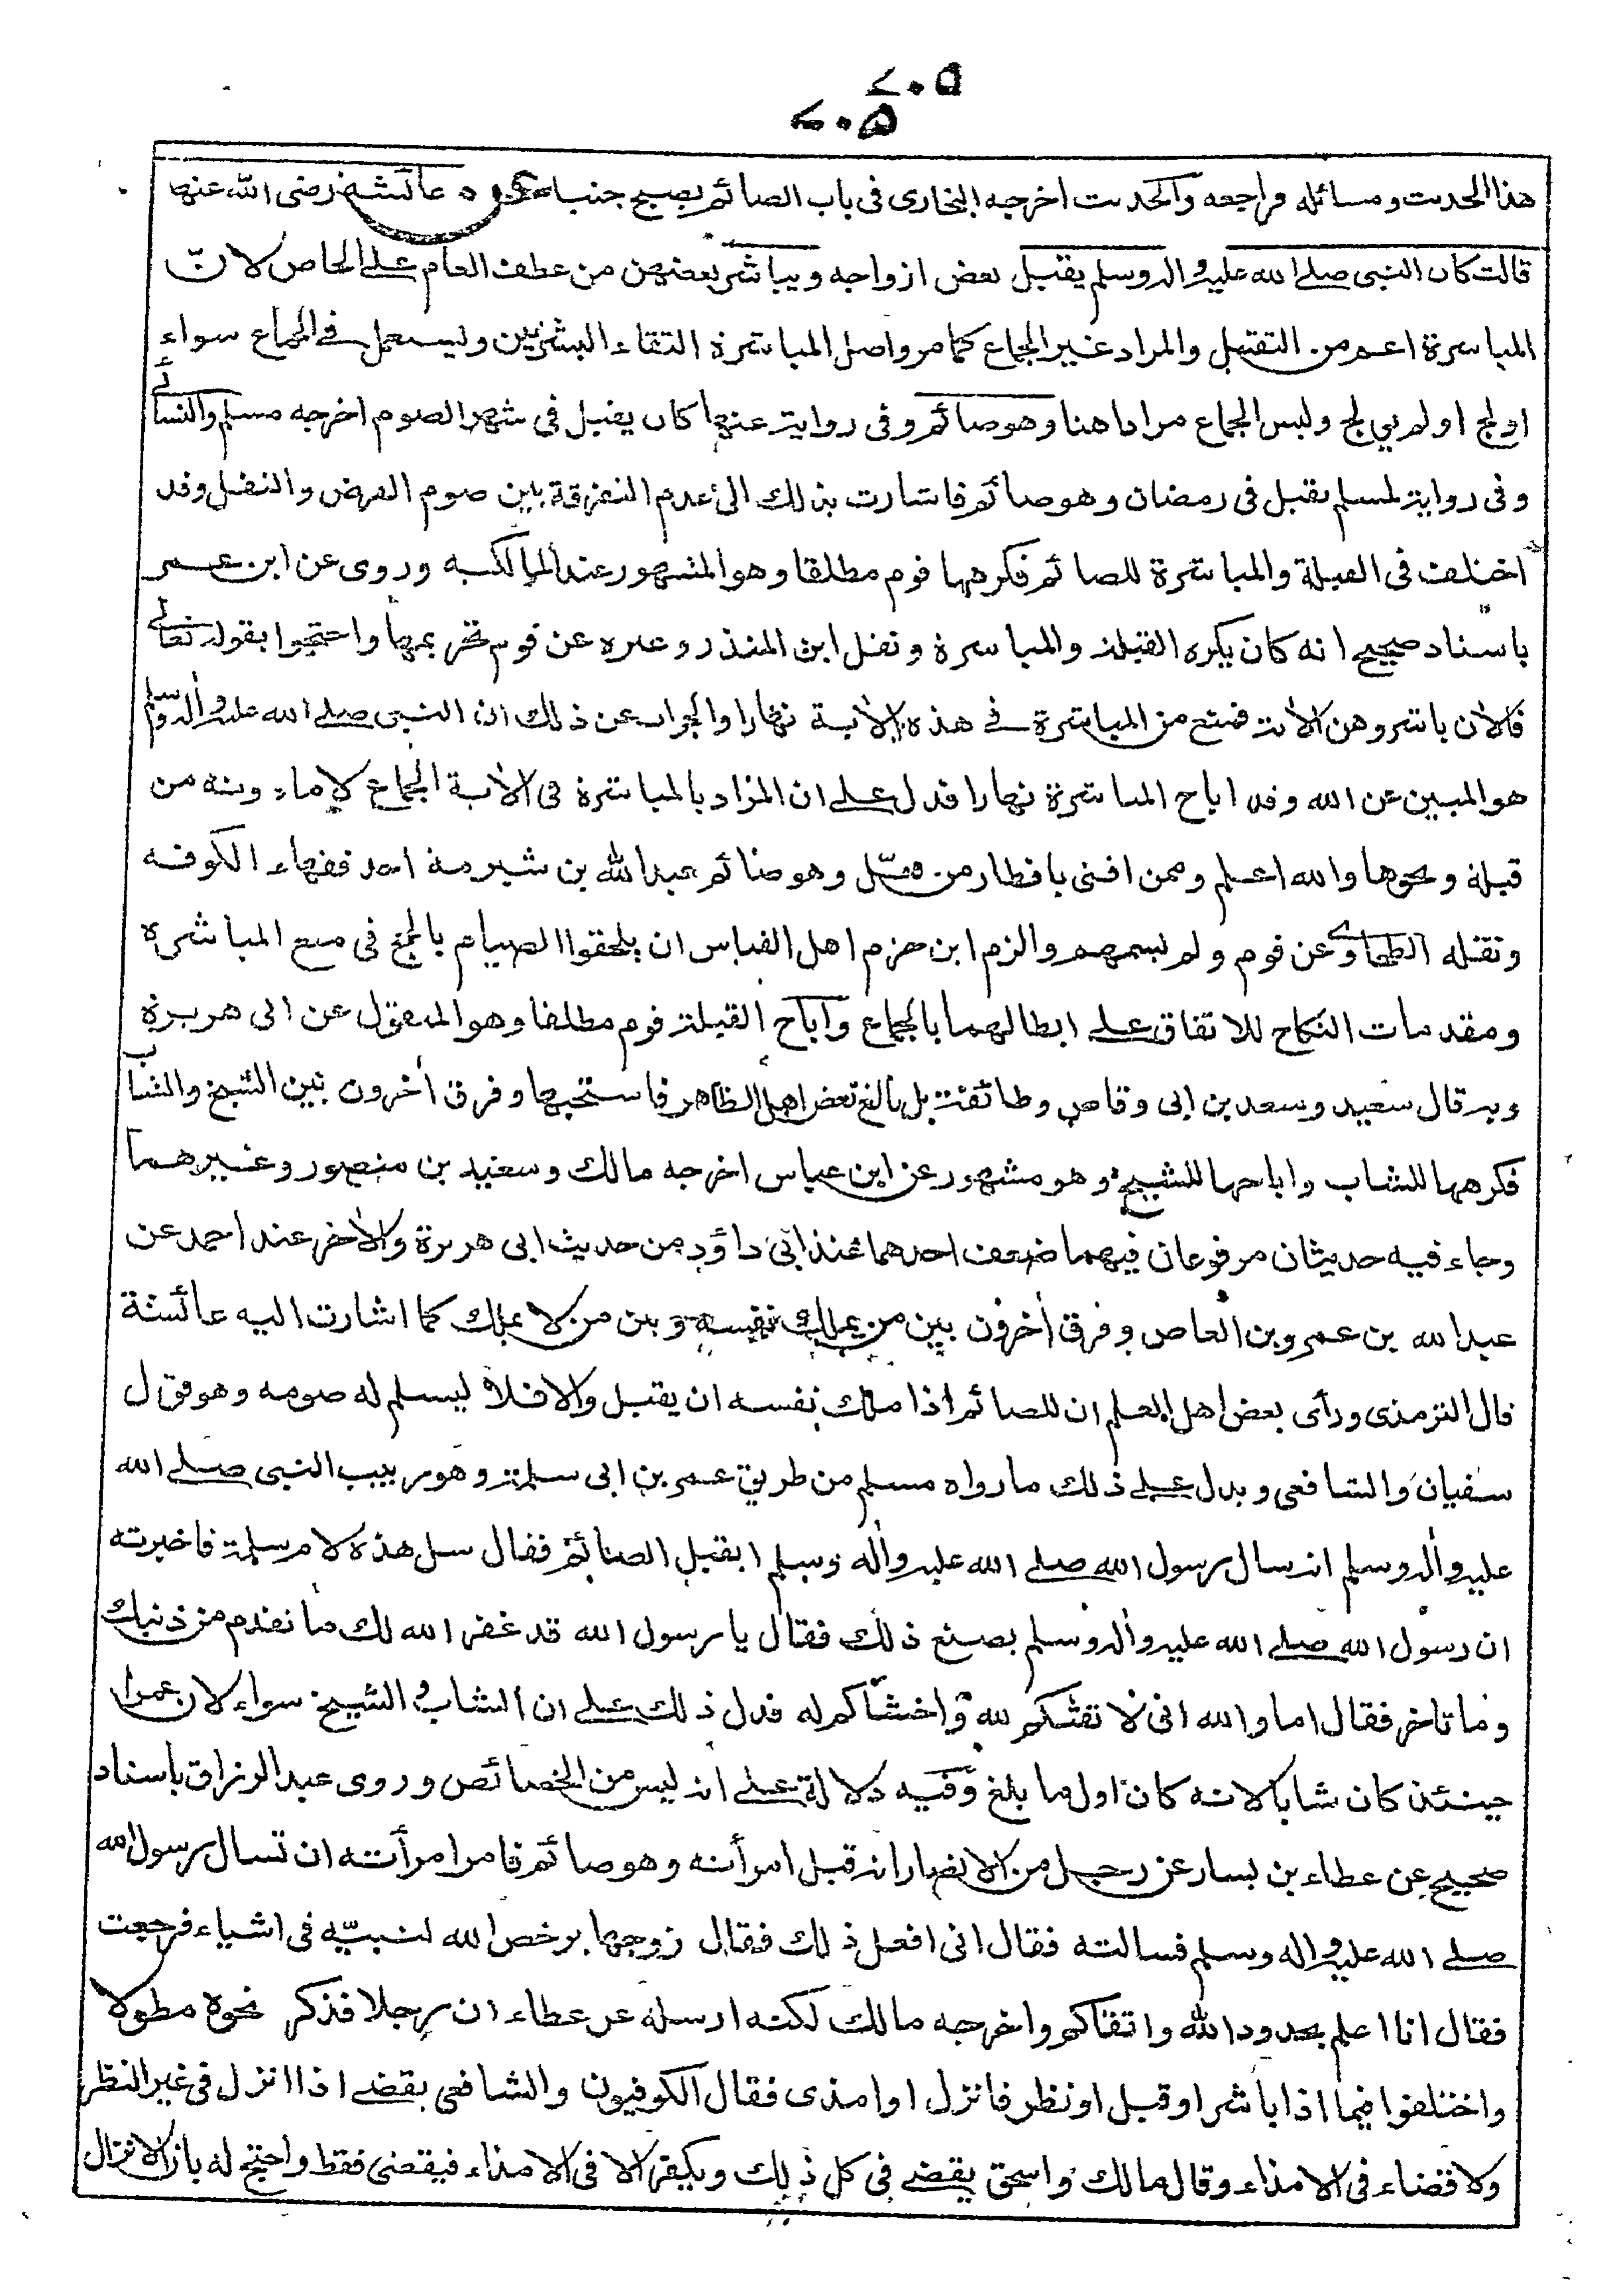 ٢٠٥
٢٠٥
هذا الحديث ومسائله فراجعه والحديث اخرجه البخارى فى باب الصائم يصبح جنبا عن عائشة رضى الله عنها
قالت كان النبى صلى الله عليه واله وسلم يقبل بعض ازواجه ويباشر بعضهن من عطف العام على الخاص لانّ
المباشرة اعم من التقبيل والمراد غير الجماع كما مر واصل المباشرة التقاء البشرتين ويستعمل فى الجماع سواء
اولج او لم يولج وليس الجماع مرادا هنا وهو صائم وفى رواية عنها كان يقبل فى شهر الصوم اخرجه مسلم والنسائى
وفى رواية لمسلم يقبل فى رمضان وهو صائم فاشارت بذلك الى عدم التفرقة بين صوم الفرض والنفل وقد
اختلف فى القبلة والمباشرة للصائم فكرهها قوم مطلقا وهو المشهور عند المالكيه وروى عن ابن عمر
باسناد صحيح انه كان يكره القبلة والمباشرة ونقل ابن المنذر وغيره عن قوم تحريمها واحتجوا بقوله تعالى
فالأن باشروهن الأية فمنع من المباشرة فى هذه الأية نهارا والجواب عن ذلك ان النبى صلى الله عليه واله وسلم
هو المبين عن الله وقد اباح المباشرة نهارا فدل على ان المراد بالمباشرة فى الأية الجماع لا ما دونه من
قبلة ونحوها والله اعلم وممن افتى بافطار من قبّل وهو صائم عبدالله بن شبرمة احد فقهاء الكوفه
ونقله الطحاوى عن قوم ولم يسمهم والزم ابن حزم اهل القياس ان يلحقوا الصيام بالحج فى منع المباشره
ومقدمات النكاح للاتفاق على ابطالهما بالجماع وأباح القبلة قوم مطلقا وهو المنقول عن ابى هريرة
وبه قال سعيد وسعد بن ابى وقاص وطائفة بل بالغ بعض اهل الظاهر فاستحبها وفرق أخرون بين الشيخ والشاب
فكرهها للشاب واباحها للشيخ وهو مشهور عن ابن عباس اخرجه مالك وسعيد بن منصور وغيرهما
وجاء فيه حديثان مرفوعان فيهما ضعف احدهما عند ابى داؤد من حديث ابى هريرة والأخر عند احمد عن
عبدالله بن عمرو بن العاص وفرق أخرون بين من يملك نفسه وبين من لا يملك كما اشارت اليه عائشة
قال الترمذى ورأى بعض اهل العلم ان للصائم اذا ملك نفسه ان يقبل والا فلا ليسلم له صومه وهو قول
سفيان والشافعى ويدل على ذلك ما رواه مسلم من طريق عمر بن ابى سلمة وهو ربيب النبى صلى الله
عليه واله وسلم انه سال رسول الله صلى الله عليه واله وسلم ايقبل الصائم فقال سل هذه لام سلمة فاخبرته
ان رسول الله صلى الله عليه واله وسلم يصنع ذلك فقال يا رسول الله قد غفر الله لك ما تقدم من ذنبك
وما تاخر فقال اما والله انى لاتقٰكم لله واخشاكم له فدل ذلك على ان الشاب والشيخ سواء لان عمرا
حينئذ كان شابا لانه كان اول ما بلغ وفيه دلالة على انه ليس من الخصائص وروى عبد الرزاق باسناد
صحيح عن عطاء بن يسار عن رجل من الانصار انه قبل امرأته وهو صائم فامر امرأته ان تسال رسول الله
صلى الله عليه واله وسلم فسالته فقال انى افعل ذلك فقال زوجها يرخص الله لنبيّه فى اشياء فرجعت
فقال انا اعلم بحدود الله واتقاكم واخرجه مالك لكنه ارسله عن عطاء ان رجلا فذكر نحوه مطولا
واختلفوا فيما اذا باشر او قبل او نظر فانزل او امذى فقال الكوفيون والشافعى يقضى اذا انزل فى غير النظر
ولا قضاء فى الامذاء وقال مالك واسحق يقضى فى كل ذلك ويكفر الا فى الامذاء فيقضى فقط واحتج له بان الانزال